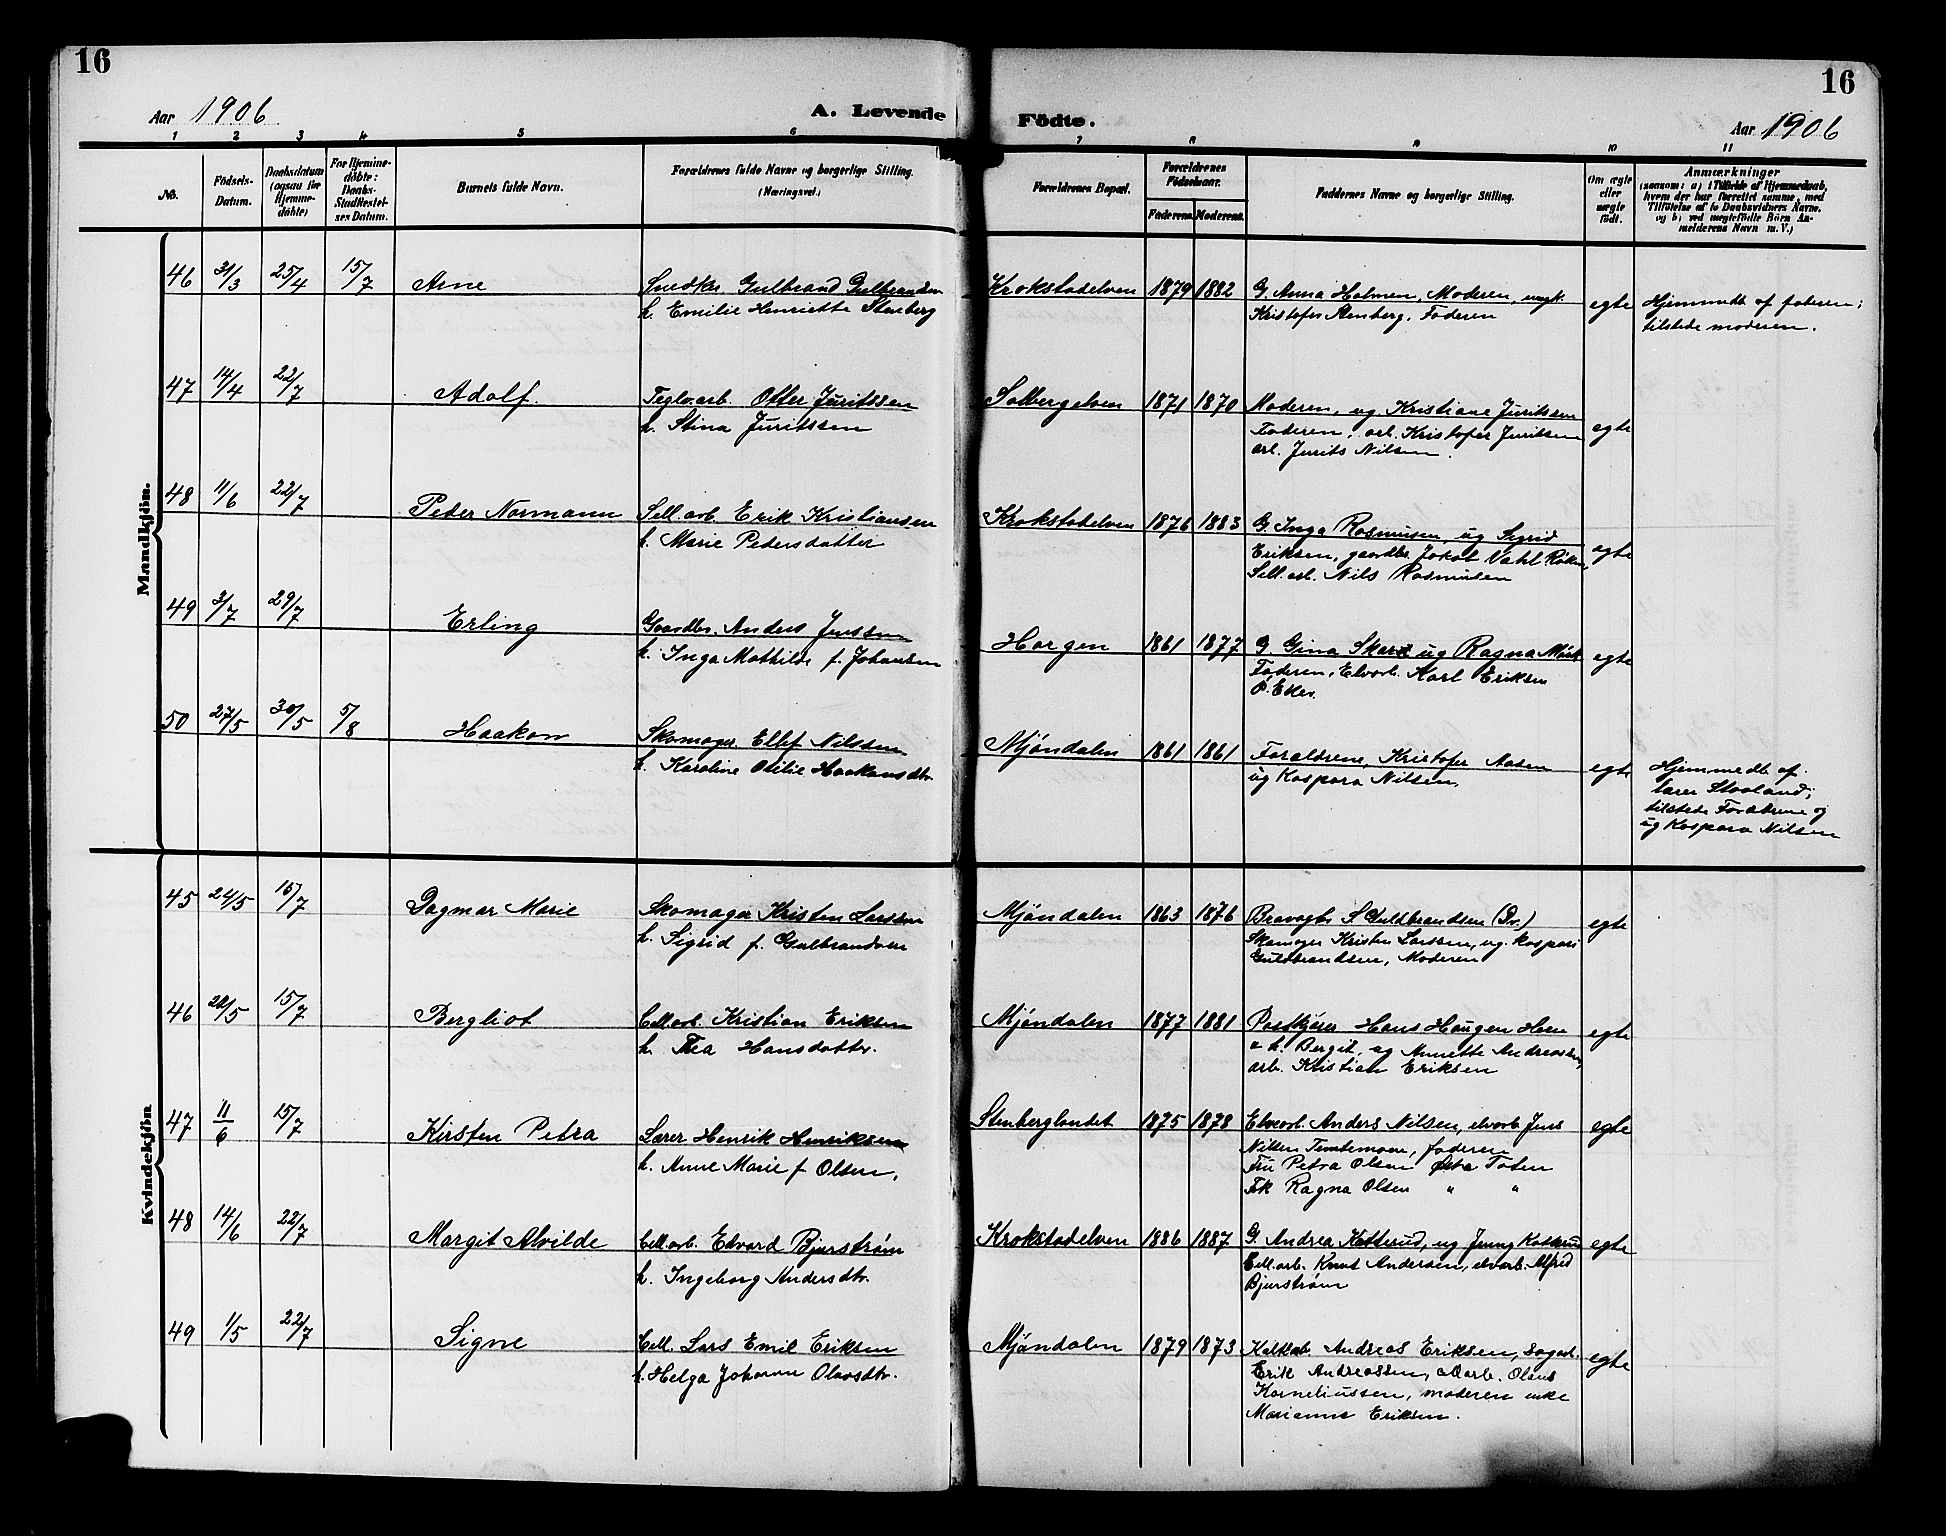 16
16
Aar 1906
A. Levende
Födte.
Aar 1906
1 2 3 4 5 6 7 8 9 10 11
No.
Födsels-
Datum.
Daabsdatum
(ogsaa for
Hjemme-
døbte)
For Hjemme-
döbte:
Daabs-
Stadfæstel-
ses Datum.
Barnets fulde Navn.
Forældrenes fulde Navne og borgerlige Stilling.
(Næringsvei.)
Forældrenes Bopæl.
Forældrenes
Födselsaar.
Faderens. Moderens.
Faddernes Navne og borgerlige Stilling.
Om ægte
eller
uægte
født.
Anmærkninger
(saasom: a) i Tilfælde af Hjemmedaab,
hvem der har forrettet samme, med
Tilföielse af to Daabsvidners Navne,
og b) ved uægtefödte Börn An-
melderens Navn m. V.)
Mandkjön.
46 31/3 25/4 15/7 Arne Snedker Gulbrand Gulbrandsen
h. Emilie Henriette Stenberg
Krokstadelven 1879 1882 G. Anna Holmen, Moderen, ungk.
Kristofer Arnberg, Faderen
egte
Hjemmedb af faderen;
tilstede moderen.
47 14/4 22/7 Adolf. Teglv.arb. Otter Juritssen
h. Stina Juritssen
Solbergelven 1871 1870 Moderen, ug Kristiane Juritssen
Faderen, arb. Kristofer Juritsen
arb. Jurits Nilsen.
egte
48 11/6 22/7 Peder Normann Sell.arb. Erik Kristiansen
h. Marie Pedersdatter
Krokstadelven 1876 1883 G. Inga Rasmusen, ug Sigrid
Eriksen, gaardbr. Jakob Vahl Røken,
Sell.arb. Nils Rasmusen
egte
49 3/7 29/7 Erling Gaardbr. Anders Jenssen
h. Inga Mathilde f. Johansen
Horgen 1861 1877 G. Gina Skara ug Ragna Mørk
Faderen, Elvarb. Karl Eriksen
Ø. Eker.
egte
50 27/5 30/5 5/8 Haakon Skomager Ellef Nilssen
h. Karoline Otilie Haakonsdtr.
Mjøndalen 1861 1861 Forældrene, Kristofer Aasen
ug Kaspara Nilsen.
egte
Hjemmedb af
lærer Stoaland;
tilstede Forældrene og
ug Kaspara Nilsen
Kvindekjön
45 24/5 15/7 Dagmar Marie Skomager Kristen Larssen
h. Sigrid f. Gulbrandsen
Mjøndalen 1863 1876 S Guldbrandsen (Dr.)
Skomager Kristen Larssen, ug. Kaspara
Guldbrandsen, Moderen
egte
46 28/5 15/7 Bergliot Cell.arb. Kristian Eriksen
h. Thea Hansdatter.
Mjøndalen 1877 1881 Postkjører Hans Haugen Horn
o h. Bergit, ug Annette Andreassen,
arb. Kristian Eriksen
egte
47 11/6 15/7 Kirsten Petra Lærer Henrik Henriksen
h. Anne Marie f Olsen,
Stenberglandet 1875 1878 Elvearb. Anders Nilsen, elvarb Jens
Nilsen Temtemoen, faderen
Fru Petra Olsen Østre Toten
Frk Ragna Olsen " "
egte
48 14/6 22/7 Margit Alvilde Cell.arb. Edvard Bjurstrøm
h. Ingeborg Andersdtr.
Krokstadelven 1886 1887 G. Andrea Katterud, ug Jenny Katterud
Cell.arb. Knut Andersen, elvarb. Alfred
Bjurstrøm
egte
49 1/5 22/7 Signe Cell. Lars Emil Eriksen
h. Helga Johanne Olavsdtr.
Mjøndalen 1879 1873 Andreas Eriksen,
Erik Andreassen, arb. Olaus
Korneliussen, moderen enke
Marianne Eriksen.
egte